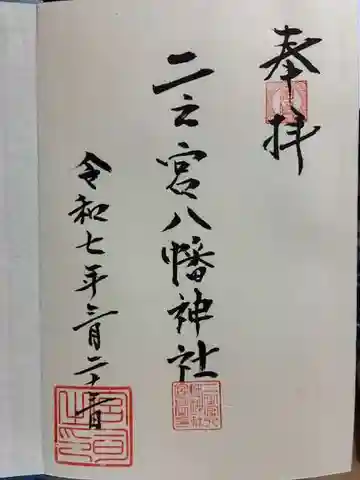 奉拝
二之宮八幡神社
令和七年三月二十一日